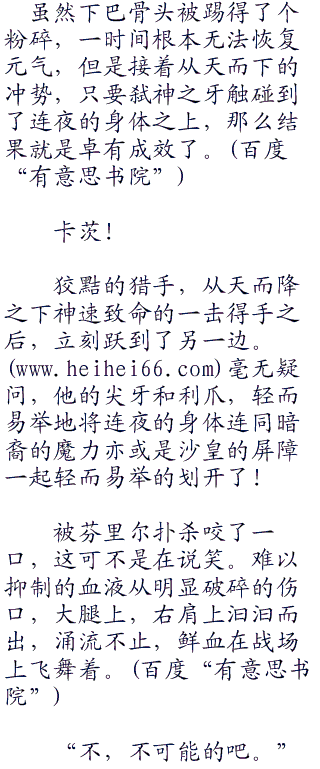 虽然下巴骨头被踢得了个
粉碎，一时间根本无法恢复
元气，但是接着从天而下的
冲势，只要弑神之牙触碰到
了连夜的身体之上，那么结
果就是卓有成效了。(百度
“有意思书院”)
卡茨！
狡黠的猎手，从天而降
之下神速致命的一击得手之
后，立刻跃到了另一边。
(www.heihei66.com)毫无疑
问，他的尖牙和利爪，轻而
易举地将连夜的身体连同暗
裔的魔力亦或是沙皇的屏障
一起轻而易举的划开了！
被芬里尔扑杀咬了一
口，这可不是在说笑。难以
抑制的血液从明显破碎的伤
口，大腿上，右肩上汩汩而
出，涌流不止，鲜血在战场
上飞舞着。(百度“有意思书
院”)
“不，不可能的吧。”